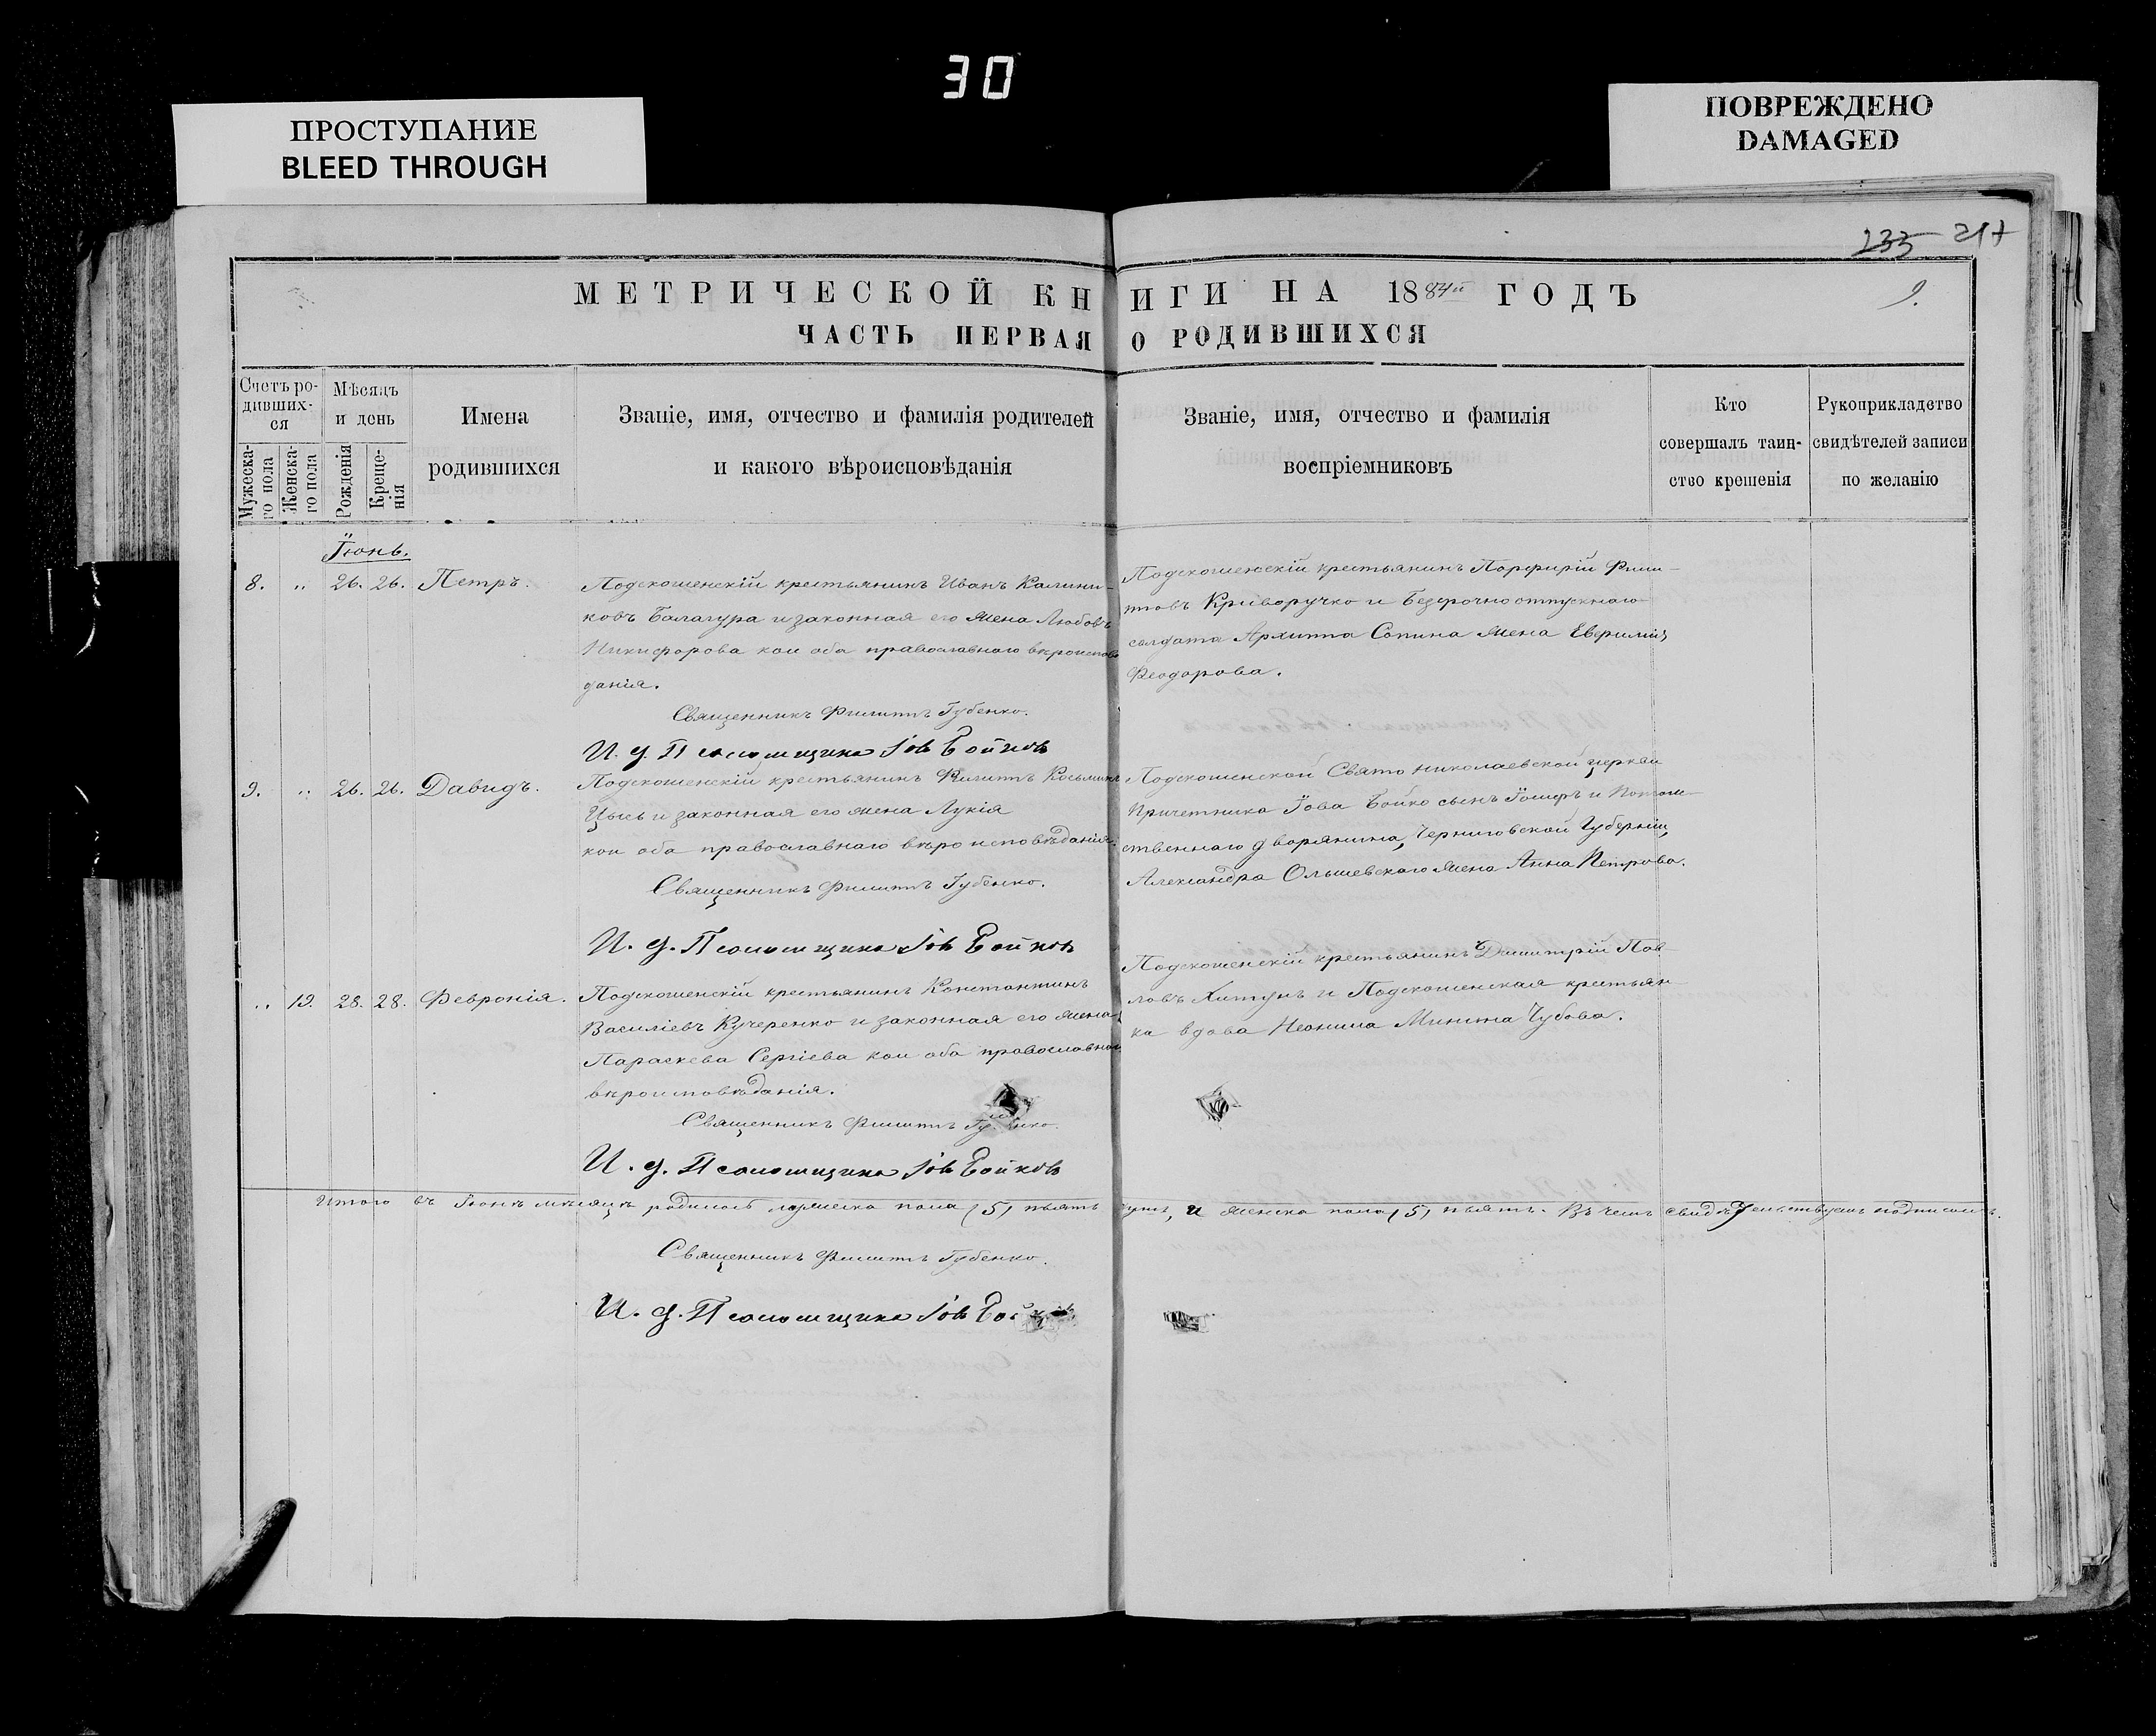 30
ПРОСТУПАНИЕ
BLEED THROUGH
ПОВРЕЖДЕНО
DAMAGED
233
МЕТРИЧЕСКОЙ КНИГИ НА 1884й ГОДЪ
9.
ЧАСТЬ ПЕРВАЯ О РОДИВШИХСЯ
Счетъ ро-
дивших-
ся
Мужеска-
го пола
Женска-
го пола
Мѣсяцъ
и день
Рожденія
Креще-
нія
Имена
родившихся
Званіе, имя, отчество и фамилія родителей
и какого вѣроисповѣданія
Званіе, имя, отчество и фамилія
воспріемниковъ
Кто
совершалъ таин-
ство крещенія
Рукоприкладство
свидѣтелей записи
по желанію
Іюнь.
8. „ 26. 26. Петръ.
Подскошенскій крестьянинъ Иванъ Калини-
ковъ Балагура и законная его жена Любовь
Никифорова кои оба православнаго вѣроисповѣ
данія.
Священникъ Филиппъ Губенко.
И. д. Псаломщика Іовъ Бойковъ
Подскошенскій крестьянинъ Порфирій Фили-
повъ Криворучко и безсрочноотпускнаго
солдата Архиппа Сопина жена
Феодорова.
9. „ 26. 26. Давидъ.
Подскошенскій крестьянинъ Филиппъ Косьминъ
Цысь и законная его жена Лукія
кои оба православнаго вѣроисповѣданія.
Священникъ Филиппъ Губенко.
И. д. Псаломщика Іовъ Бойковъ
Подскошенской Свято Николаевской церкви
Причетника Іова Бойко сынъ Іосифъ и Потом-
ственнаго дворянина, Черниговской Губерніи,
Александра Ольшевскаго жена Анна Петрова.
„ 19. 28. 28. Февронія.
Подскошенскій крестьянинъ Константинъ
Василіевъ Кучеренко и законная его жена
Параскева Сергіева кои оба православнаго
вѣроисповѣданія.
Священникъ Филиппъ Губенко.
И. д. Псаломщика Іовъ Бойковъ
Подскошенскій крестьянинъ Димитрій Пав-
ловъ Хитунъ и Подскошенская крестьян
ка вдова Неонила Минина Чубова.
Итого въ Іюнѣ мѣсяцѣ родилось мужеска пола (5) пьять душъ, и женска пола (5) пьять. Въ чемъ свидѣтельствуемъ подписомъ.
Священникъ Филиппъ Губенко.
И. д. Псаломщика Іовъ